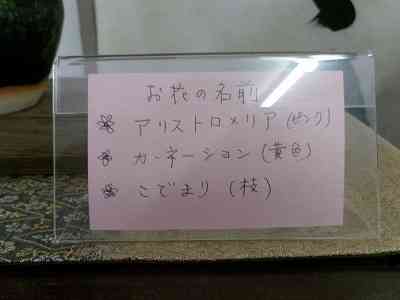 お花の名前
アリストロメリア(ピンク)
カーネーション(黄色)
こでまり(枝)